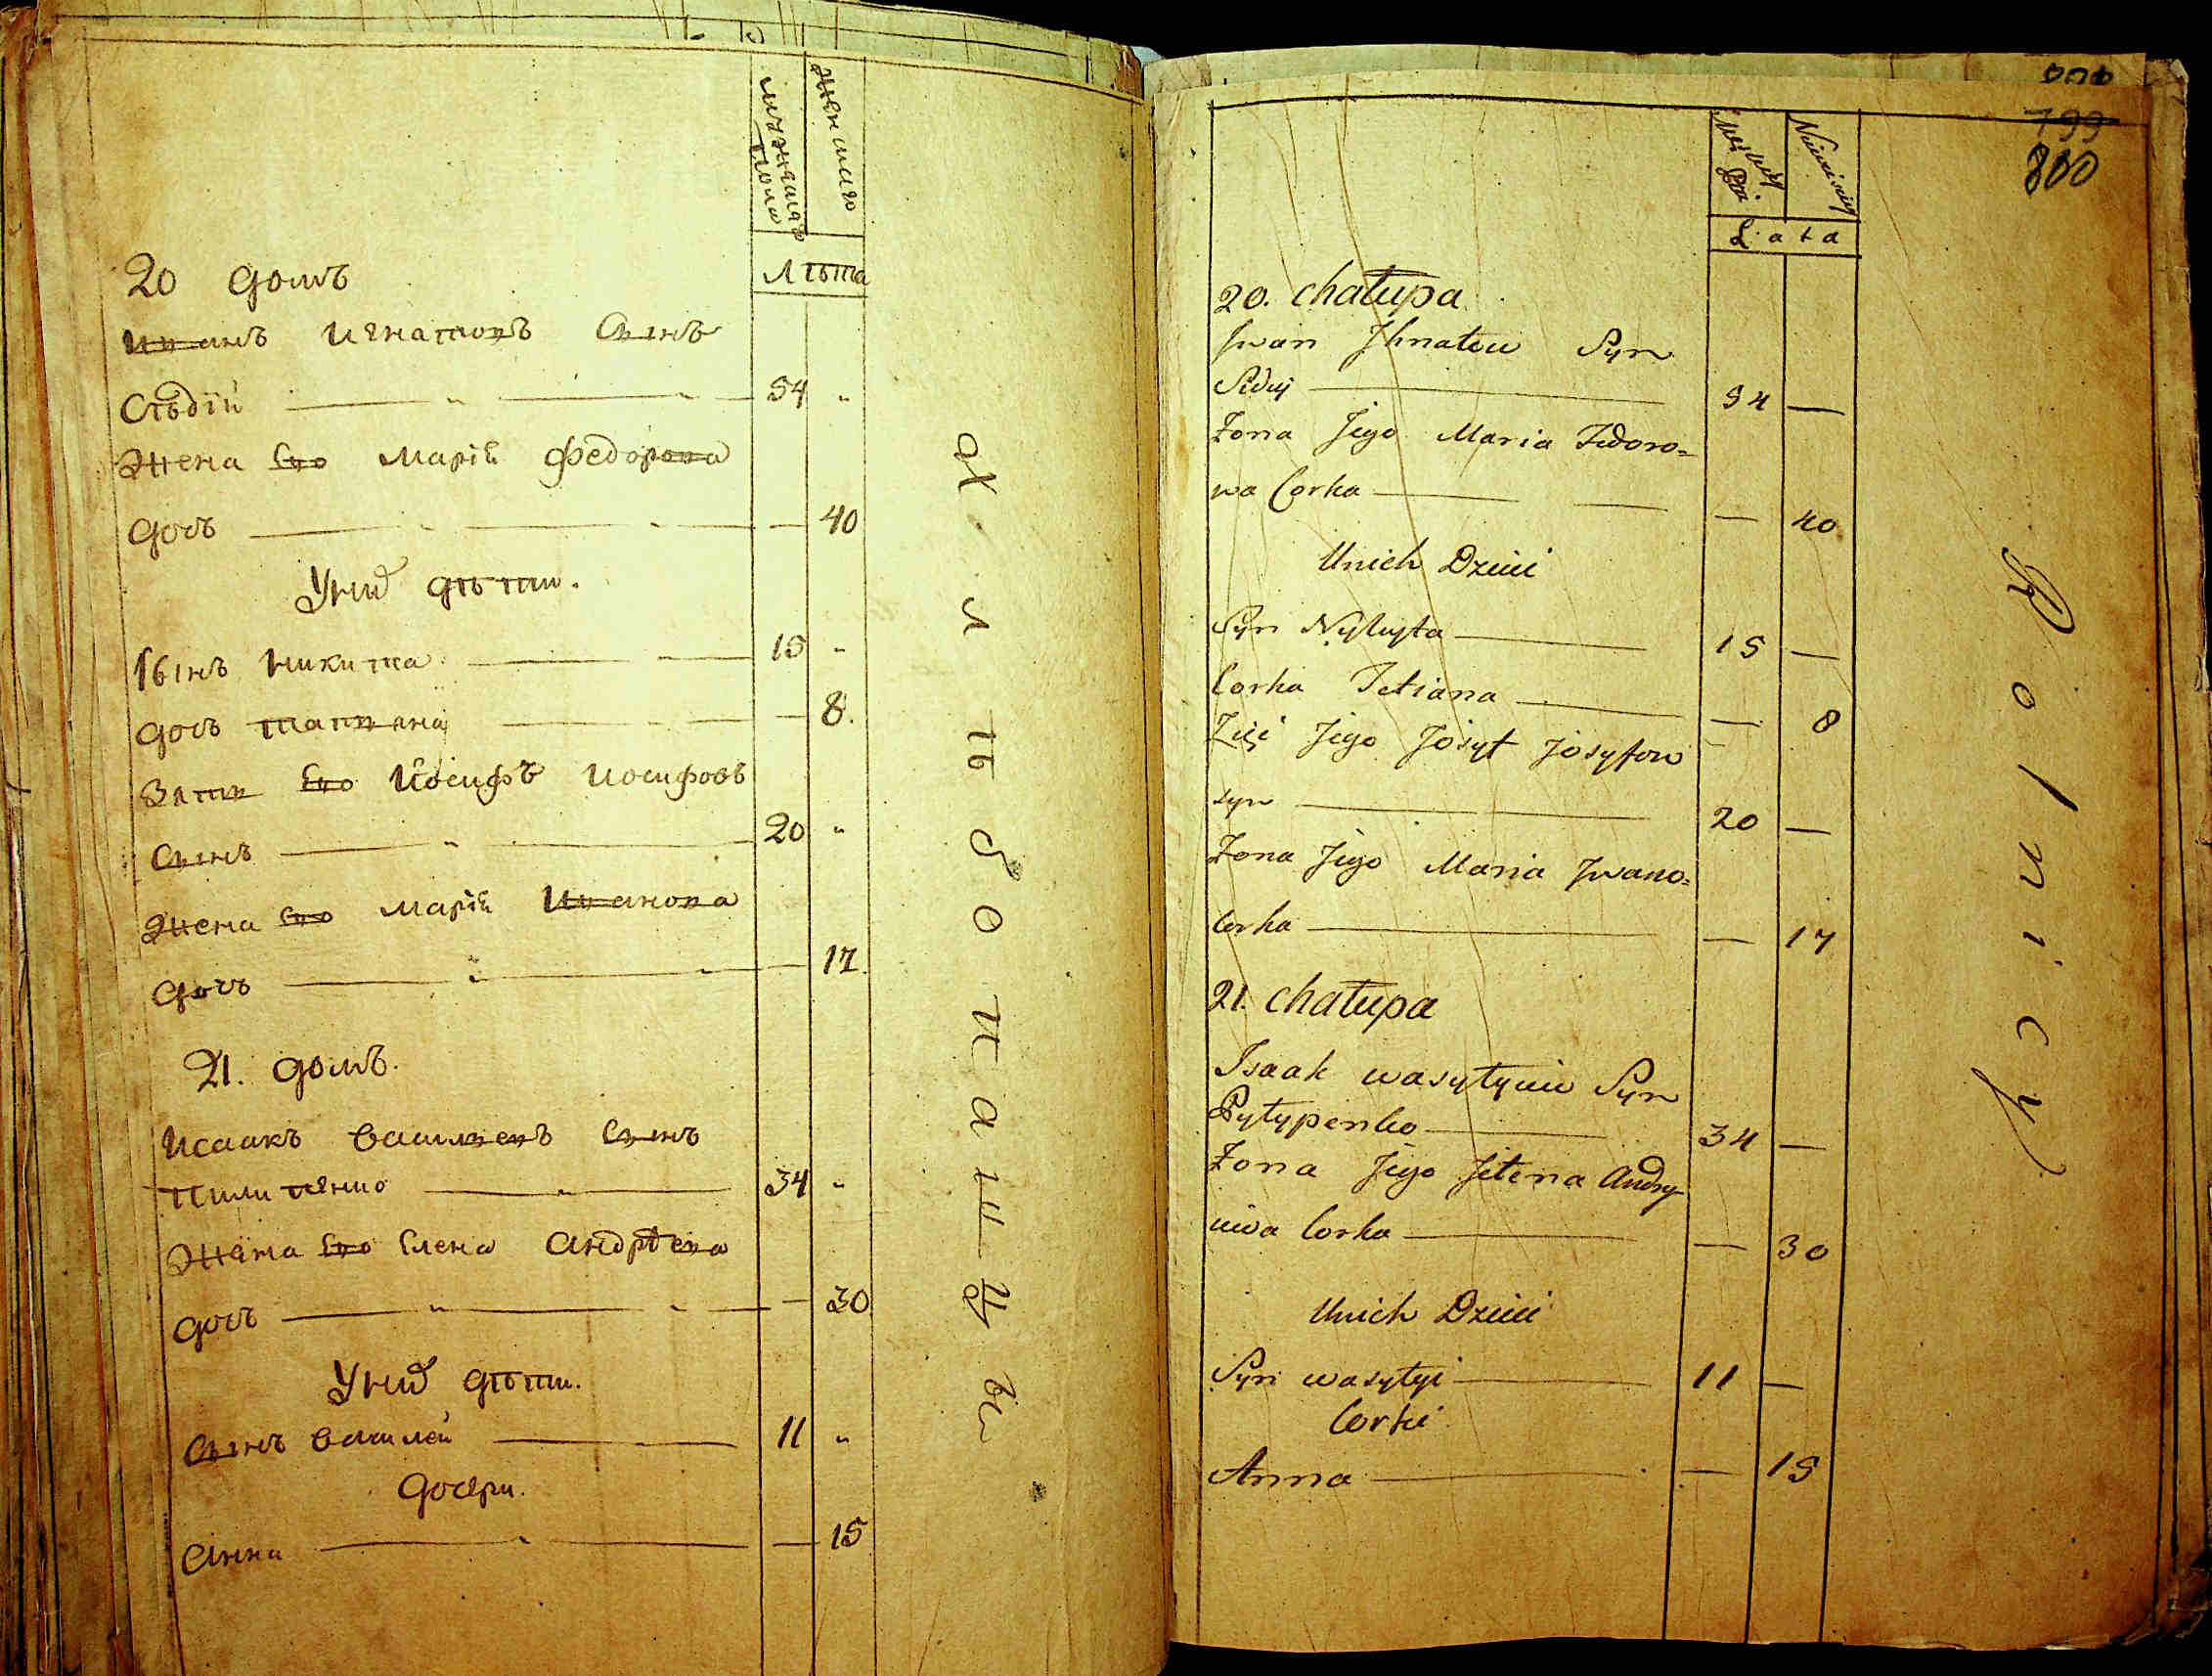 мужеска
пола
женшаго
Лѣта
20 домъ
Иванъ Игнатовъ Сынъ
Сѣдій — " — " — 54 "
Жена Его Марія Федорова
дочь — " — " — — 40
У них дѣти.
Сынъ Никита — — 15 "
дочь татіяна — — — 8.
Зять Его Иосифъ Иосифовъ
Сынъ — " — 20 "
Жена Его Марія Иванова
дочь — " — " — — 17.
21. домъ.
Исаакъ Василіевъ Сынъ
Пилипенко — " — 34 "
Жена Его Елена Андрѣева
дочь — " — " — — 30
У них дѣти.
Сынъ Василей — 11 "
дочери.
Анна — " — — 15
Хлѣбопашцы
799
800
Lata
20. chałupa
Iwan Ihnatow Syn
Sidyj — 54 —
Żona Jego Maria Fedoro=
wa Corka — — — 40
Unich Dzieci
Syn Nykyta — 15 —
Corka Tetiana — — 8
Zięć Jego Josyf Josyfow
syn — 20 —
Żona Jego Maria Iwano=
Corka — — 17
21. chałupa
Isaak wasyłyiw Syn
Pyłypenko — 34 —
Żona Jego Jełena Andry
iwa Corka — — 30
Unich Dzieci
Syn wasyłyi — 11 —
Corki
Anna — — 15
Rolnicy